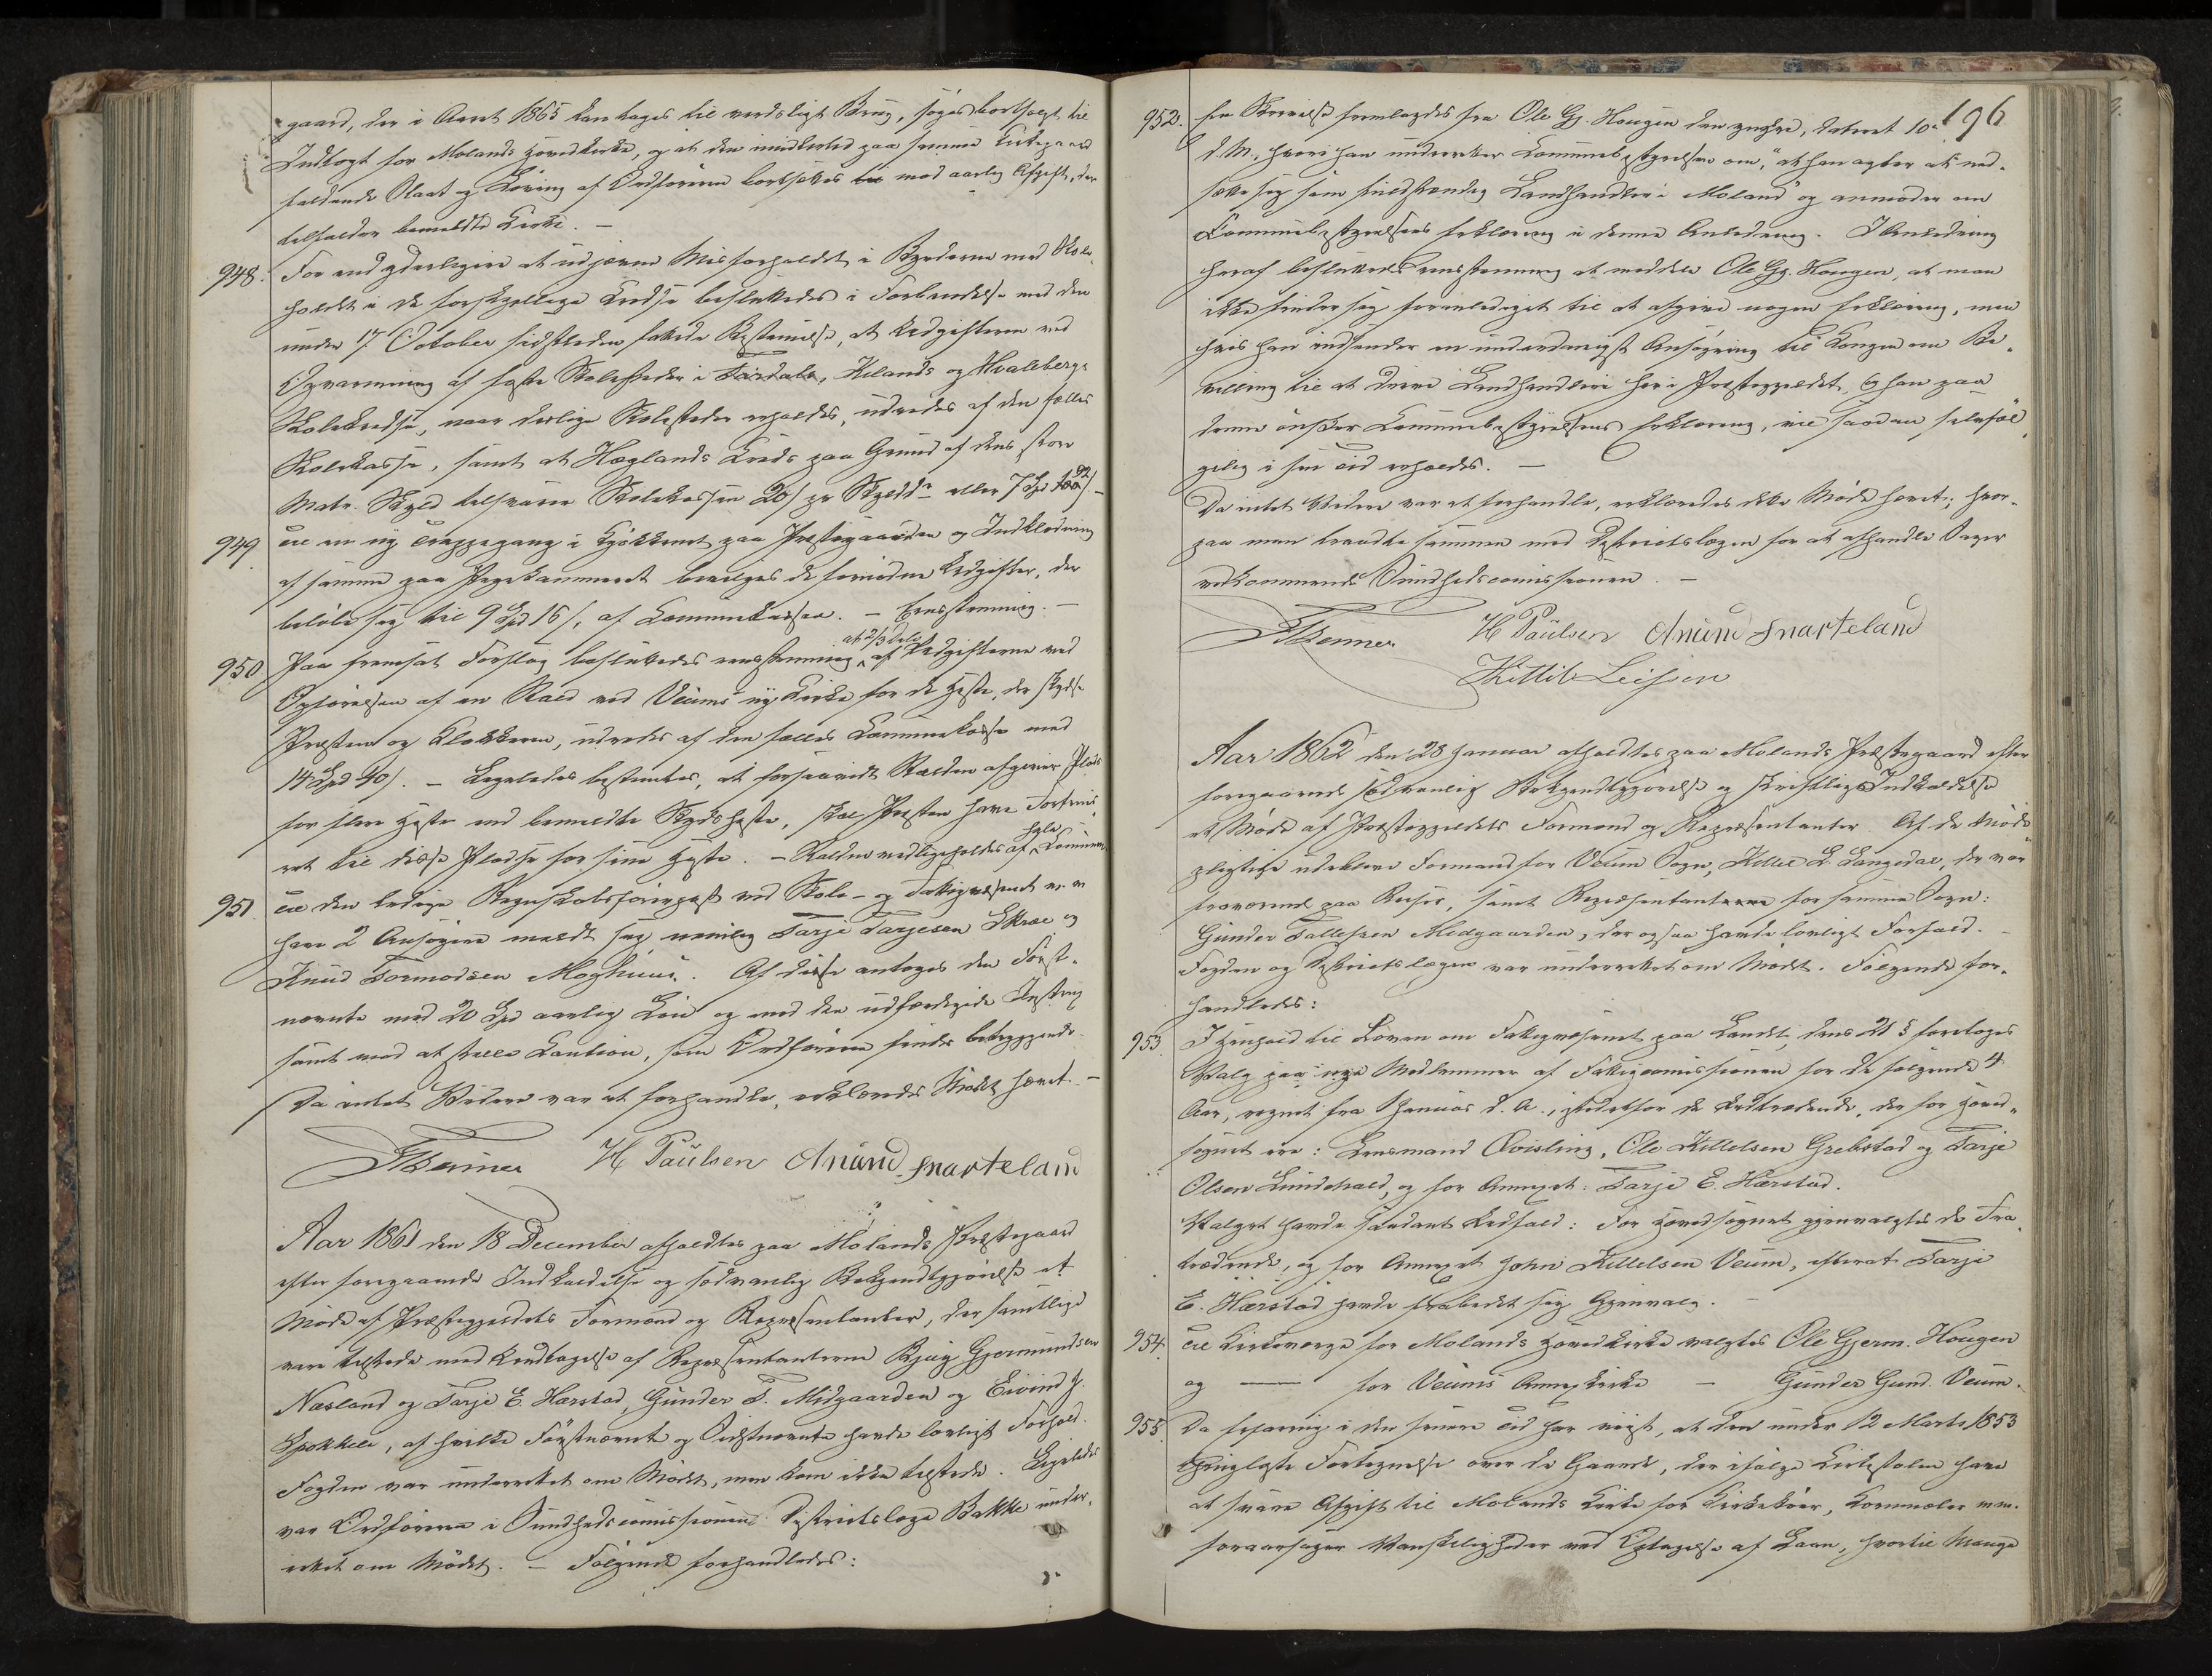 gaard, der i Aaret 1865 kan tages til verdsligt Brug, søges bortsolgt til
Indtægt for Molands Hovedkirke, og at den imidlertid paa samme Kirkegaard
faldende Slaat og Løving af Ordføreren bortsættes mod aarlig Afgift, der
tilfalder bemeldte Kirke. —
948. For end yderligere at udjævne Misforholdet i Byrderne med Skole-
holdet i de forskjellige Kredse besluttedes i Forbindelse med den
under 17 October sidstleden fattede Bestemmelse, at Udgifterne ved
Opvarmning af faste Skolesteder i Fardals, Kilands og Hvalebergs
Skolekredse, naar deslige Skolesteder erholdes, udredes af den fælles
Skolekasse, samt at Høglands Kreds paa Grund af dens store
Matr. Skyld tilsvarer Skolekassen 20 s pr Skylddr eller 7 Spd 92 s —
949. Til en ny Trappegang i Kjøkkenet paa Præstegaarden og Indklædning
af samme paa Pigekammeret bevilges de fornødne Udgifter, der
beløbe sig til 9 Spd 16 s, af Communekassen. — Eensstemmig. —
950 Paa fremsat Forslag besluttedes eensstemmig, at 2/3 Dele af Udgifterne ved
Opførelsen af en Stald ved Veums ny Kirke for de Heste, der skydse
Præsten og Klokkeren, udredes af den fælles Communekasse med
14 Spd 40 s. — Ligeledes bestemtes, at forsaavidt Stalden afgiver Plads
for flere Heste end bemeldte Skydsheste, skal Præsten have Fortrins-
ret til disse Pladse for sine Heste. — Stalden vedligeholdes af hele Communen
951. Til den ledige Regnskabsførerpost ved Skole- og Fattigvæsenet m. m
have 2 Ansøgere meldt sig nemlig Tarje Tarjesen Skræ og
Knud Tormodsen Moghuus. Af disse antoges den Først-
nævnte med 20 Spd aarlig Løn og mod den udfærdigede Instrux
samt mod at stille Caution, som Ordføreren finder betryggende.
Da intet Videre var at forhandle, erklæredes Mødet hævet. —
H Paulsen Anund Snarteland
Aar 1861 den 18 December afholdtes paa Molands Præstegaard
efter foregaaende Indkaldelse og sædvanlig Bekjendtgjørelse et
Møde af Præstegjeldets Formænd og Repræsentanter, der samtlige
vare tilstede med Undtagelse af Repræsentanterne Bjug Gjermundsen
Næsland og Tarje E. Hærstad, Gunder T. Midgaarden og Eivind J.
Spokkeli, af hvilke Førstnævnte og Sidstnævnte havde lovligt Forfald.
Fogden var underrettet om Mødet, men kom ikke tilstede. Ligeledes
var Ordføreren i Sundhedscommissionen Districtslæge Bakke under-
rettet om Mødet. — Følgende forhandledes:
196
952. En Skrivelse fremlagdes fra Ole Gj. Hougen den yngre, dateret 10de
d. M., hvori han underretter Communebestyrelsen om, "at han agter at ned-
sætte sig som fuldstændig Landhandler i Moland" og anmoder om
Communebestyrelsens Erklæring i denne Anledning. I Anledning
heraf besluttedes eensstemmig at meddele Ole Gj. Hougen, at man
ikke finder sig foranlediget til at afgive nogen Erklæring, men
hvis han indsender en underdanigst Ansøgning til Kongen om Be-
villing til at drive Landhandleri her i Præstegjeldet, og han paa
denne ønsker Communebestyrelsens Erklæring, vil saadan selvføl-
gelig i sin Tid erholdes. —
Da intet Videre var at forhandle, erklæredes dette Møde hævet; hvor-
paa man traadte sammen med Districtslægen for at afhandle Sager
vedkommende Sundhedscommissionen. —
H Paulsen Anund Snarteland
Kittil Leifsen
Aar 1862 den 28 Januar afholdtes paa Molands Præstegaard efter
foregaaende sædvanlig Bekjendtgjørelse og skriftlig Indkaldelse
et Møde af Præstegjeldets Formænd og Repræsentanter. Af de Møde-
pligtige udebleve Formand for Veum Sogn, Kittel L. Langedal, der var
fraværende paa Reiser, samt Repræsentanten for samme Sogn:
Gunder Tallefsen Midgaarden, der ogsaa havde lovligt Forfald. —
Fogden og Districtslægen var underrettet om Mødet. Følgende for-
handledes:
953. I Henhold til Loven om Fattigvæsenet paa Landet, dens 21 § foretoges
Valg paa nye Medlemmer af Fattigcommissionen for de følgende 4
Aar, regnet fra Januar d. A., istedetfor de Udtrædende, der for Hoved-
sognet ere: Lensmand Qvisling, Ole Kittelsen Grebstad og Tarje
Olsen Lundevald, og for Annexet: Tarje E. Hærstad.
Valget havde saadant Udfald: For Hovedsognet gjenvalgtes de Fra-
trædende, og for Annexet John Kittelsen Veum, efterat Tarje
E. Hærstad havde frabedet sig Gjenvalg. —
954. Til Kirkeværge for Molands Hovedkirke valgtes Ole Gjerm. Hougen
og — for Veums Annexkirke — Gunder Gund. Veum.
955. Da Erfaring i den senere Tid har viist, at den under 12 Marts 1853
thinglæste Fortegnelse over de Gaarde, der ifølge Kirkestolen have
at svare Afgift til Molands Kirke for Kirkekøer, Kornmæler m.m.
foraarsager Vanskeligheder ved Optagelse af Laan, hvortil Mange